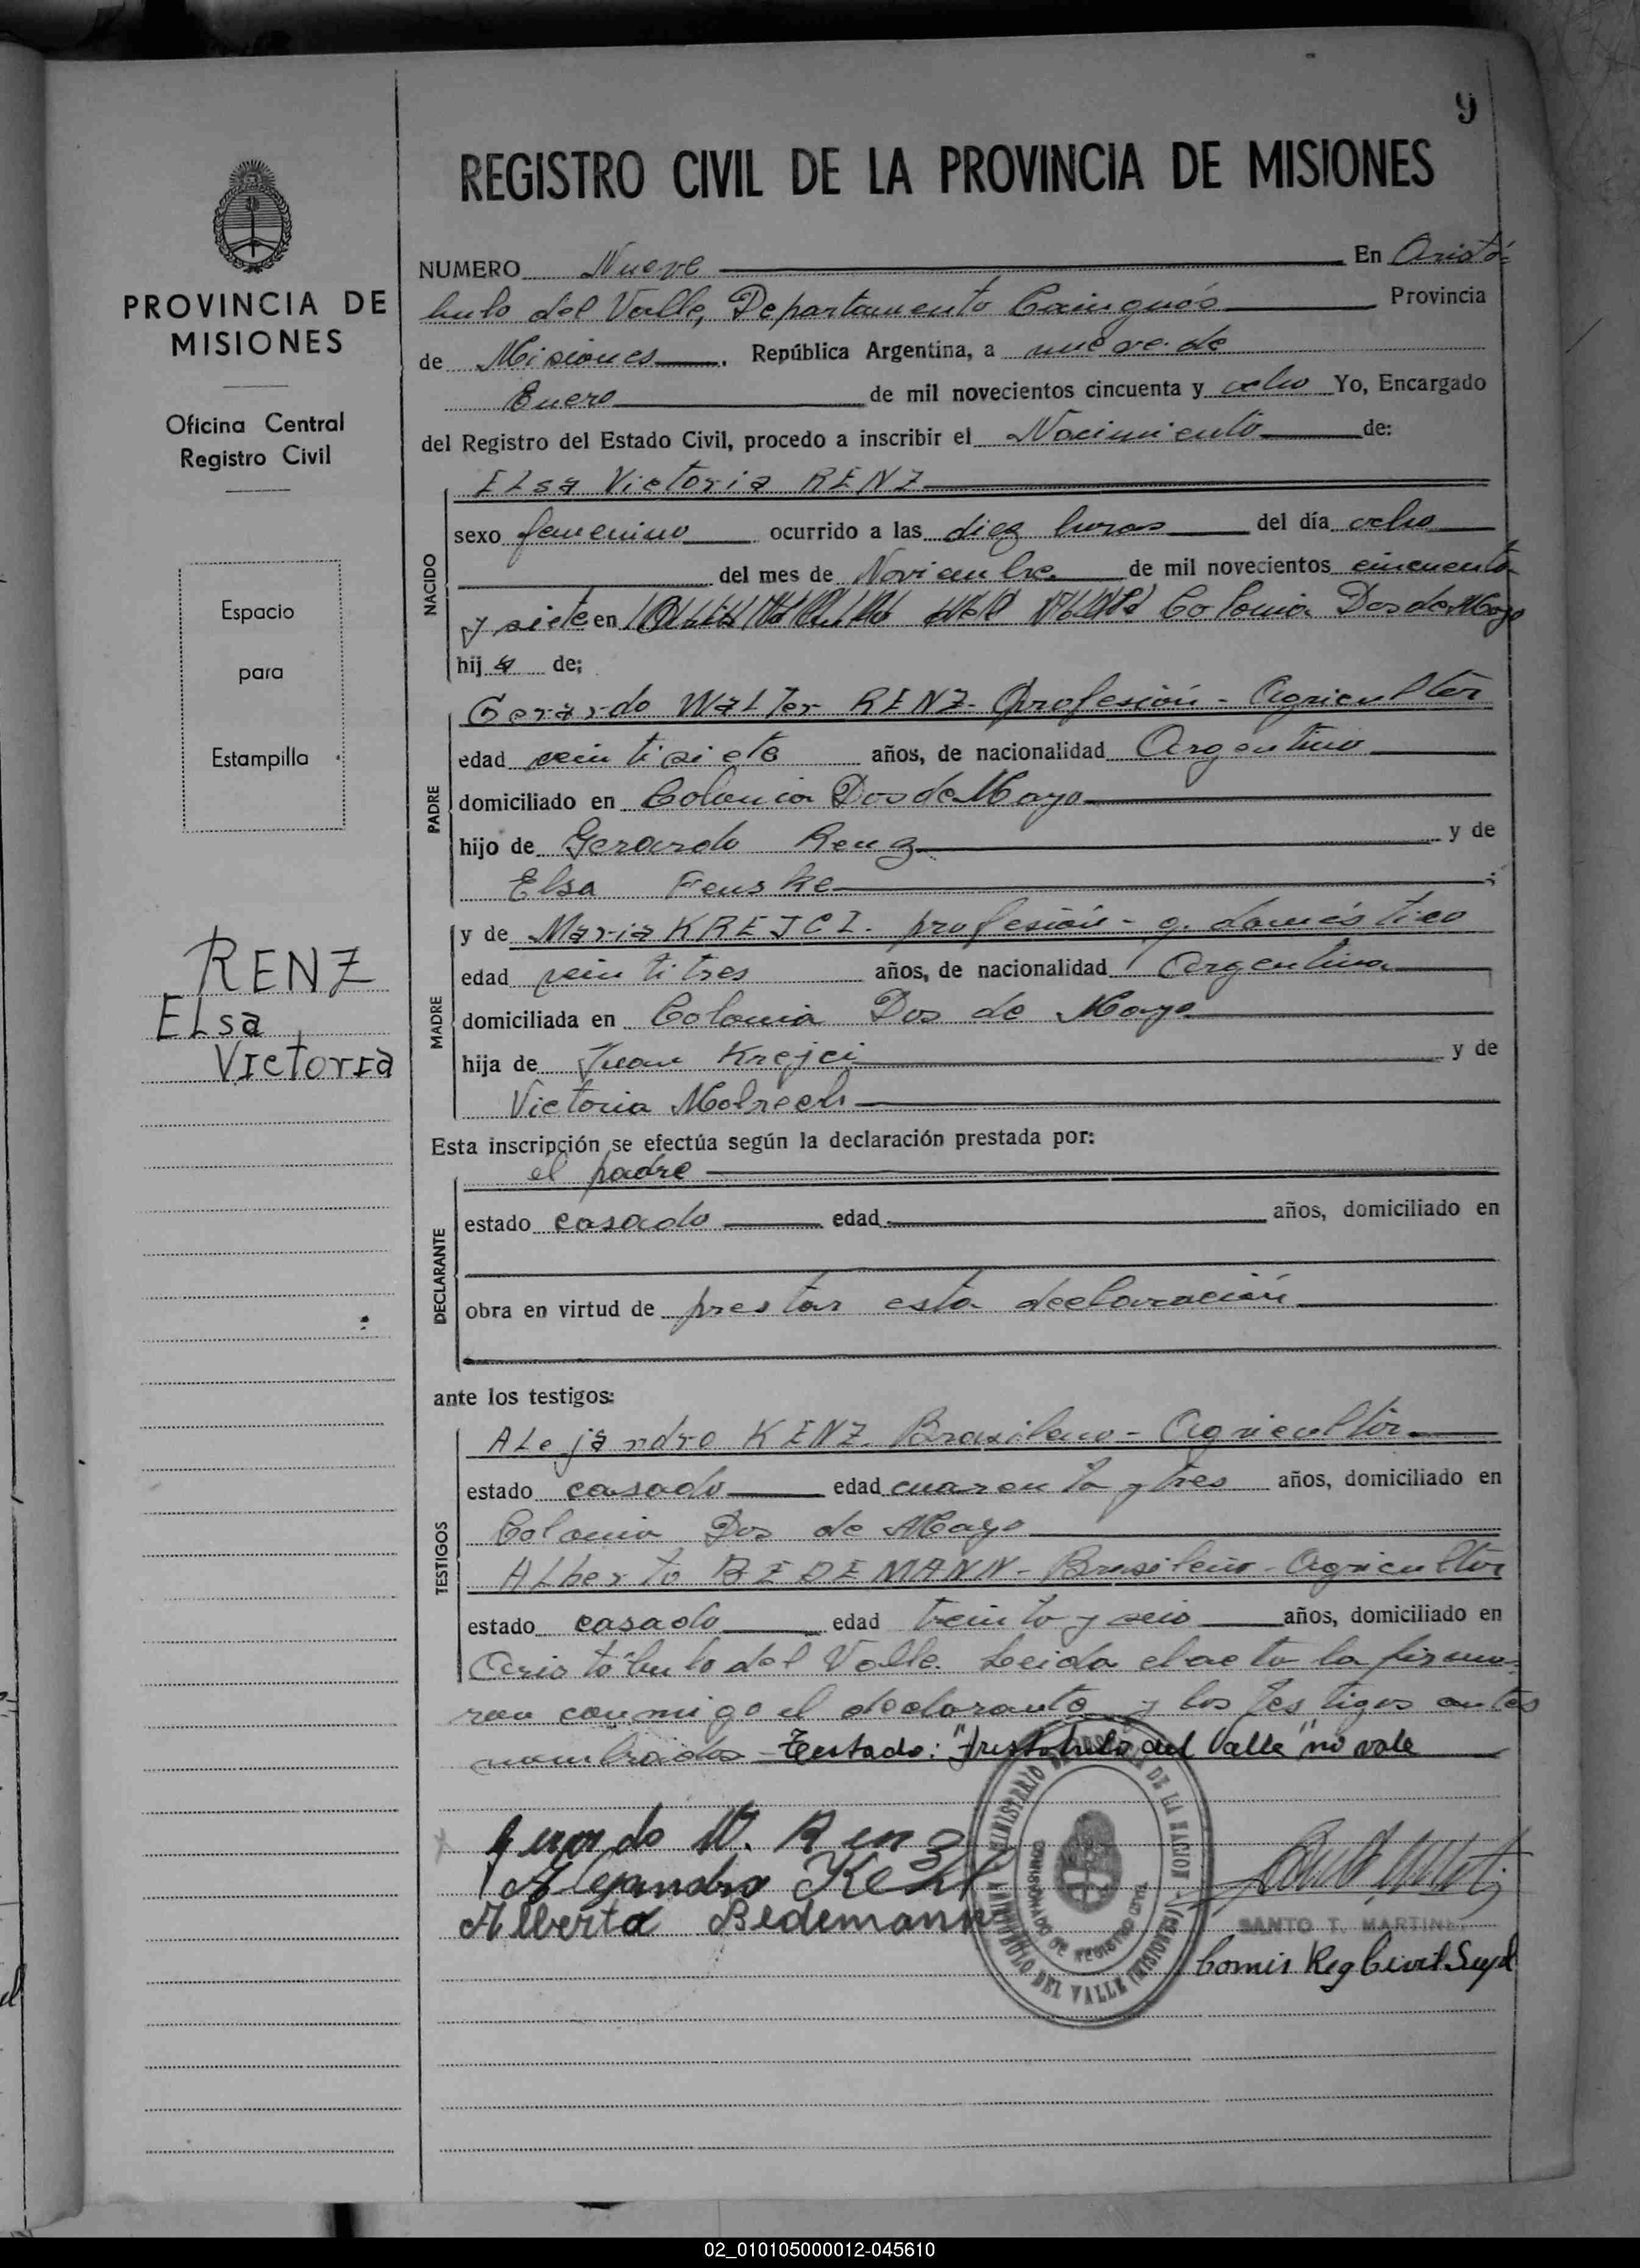 9
REGISTRO CIVIL DE LA PROVINCIA DE MISIONES
PROVINCIA DE
MISIONES
Oficina Central
Registro Civil
Espacio
para
Estampilla
RENZ
ELsa
VIctorIa
NUMERO Nueve En Aristó-
bulo del Valle, Departamento Cainguás Provincia
de Misiones. República Argentina, a nueve de
Enero de mil novecientos cincuenta y ocho Yo, Encargado
del Registro del Estado Civil, procedo a inscribir el Nacimiento de:
NACIDO
ELsa Victoria RENZ
sexo femenino ocurrido a las diez horas del día ocho
del mes de Noviembre de mil novecientos cincuenta
y siete en Colonia Dos de Mayo
hija de;
PADRE
Gerardo WaLTer RENZ- Profesión - Agricultor
edad veintisiete años, de nacionalidad Argentino
domiciliado en Colonia Dos de Mayo
hijo de Gerardo Renz y de
Elsa Fenske ;
MADRE
y de Maria KREJCI- profesión - q. doméstico
edad veintitres años, de nacionalidad Argentina
domiciliada en Colonia Dos de Mayo
hija de Juan Krejci y de
Victoria
Esta inscripción se efectúa según la declaración prestada por:
DECLARANTE
el padre
estado casado edad años, domiciliado en
obra en virtud de prestar esta declaración
ante los testigos:
TESTIGOS
ALejandro Brasileno - Agricultor
estado casado edad cuarenta y tres años, domiciliado en
Colonia Dos de Mayo
ALberto BEDEMANN - Brasileño - Agricultor
estado casado edad treinta y seis años, domiciliado en
Aristóbulo del Valle. Leida el acta la firma-
ron conmigo el declarante y los testigos antes
nombrados - Testado: "Aristobulo del Valle" no vale
Gerardo W. Renz
Alejandro
Alberto Bedemann
MINISTERIO DE LA NACION
ARISTOBULO DEL VALLE (MISIONES)
SANTO T. MARTINEZ
Comis Reg Civil Supl
02_010105000012-045610